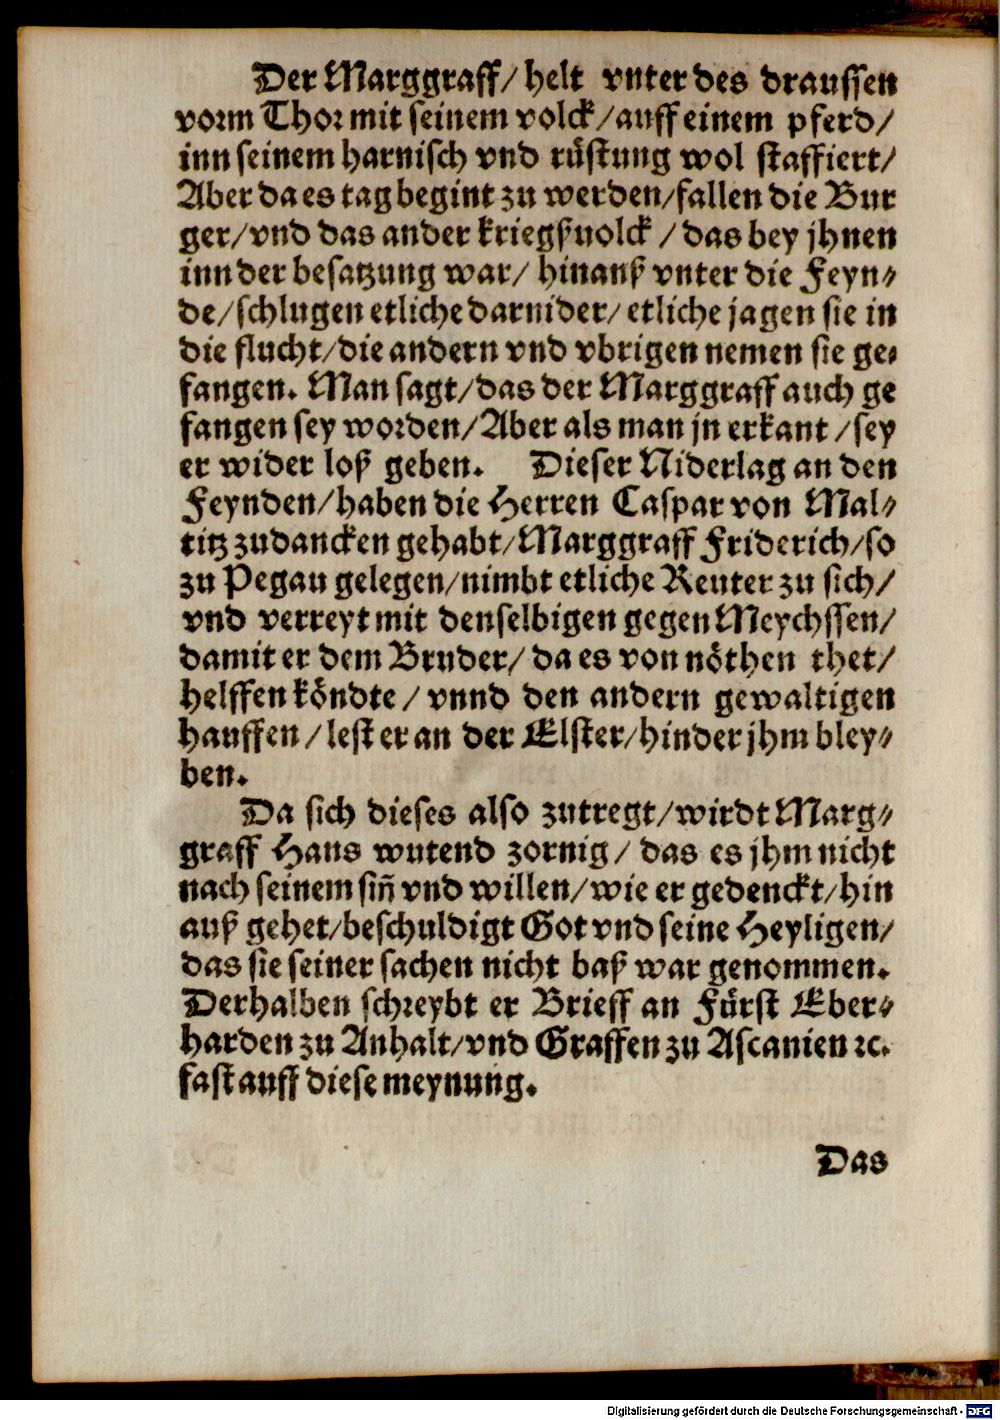 Der Marggraff/ helt vnter des draussen
vorm Thor mit seinem volck/auff einem pferd/
inn seinem harnisch vnd rüstung wol staffiert/
Aber da es tag begint zu werden/fallen die Bur
ger/vnd das ander kriegßuolck / das bey jhnen
inn der besatzung war/ hinauß vnter die Feyn⸗
de/schlugen etliche darnider/ etliche jagen sie in
die flucht/die andern vnd vbrigen nemen sie ge⸗
fangen. Man sagt/das der Marggraff auch ge
fangen sey worden/Aber als man jn erkant /sey
er wider loß geben. Dieser Niderlag an den
Feynden/haben die Herren Caspar von Mal⸗
titz zudancken gehabt/Marggraff Friderich/so
zu Pegau gelegen/nimbt etliche Reuter zu sich/
vnd verreyt mit denselbigen gegen Meychssen/
damit er dem Bruder/ da es von nöthen thet/
helffen köndte / vnnd den andern gewaltigen
hauffen /lest er an der Elster/hinder jhm bley⸗
ben.
Da sich dieses also zutregt/wirdt Marg⸗
graff Hans wutend zornig / das es jhm nicht
nach seinem siñ vnd willen/wie er gedenckt/hin
auß gehet/beschuldigt Got vnd seine Heyligen/
das sie seiner sachen nicht baß war genommen.
Derhalben schreybt er Brieff an Fürst Eber⸗
harden zu Anhalt/vnd Graffen zu Ascanien ꝛc.
fast auff diese meynung.
Das
Digitalisierung gefördert durch die Deutsche Forschungsgemeinschaft - DFG